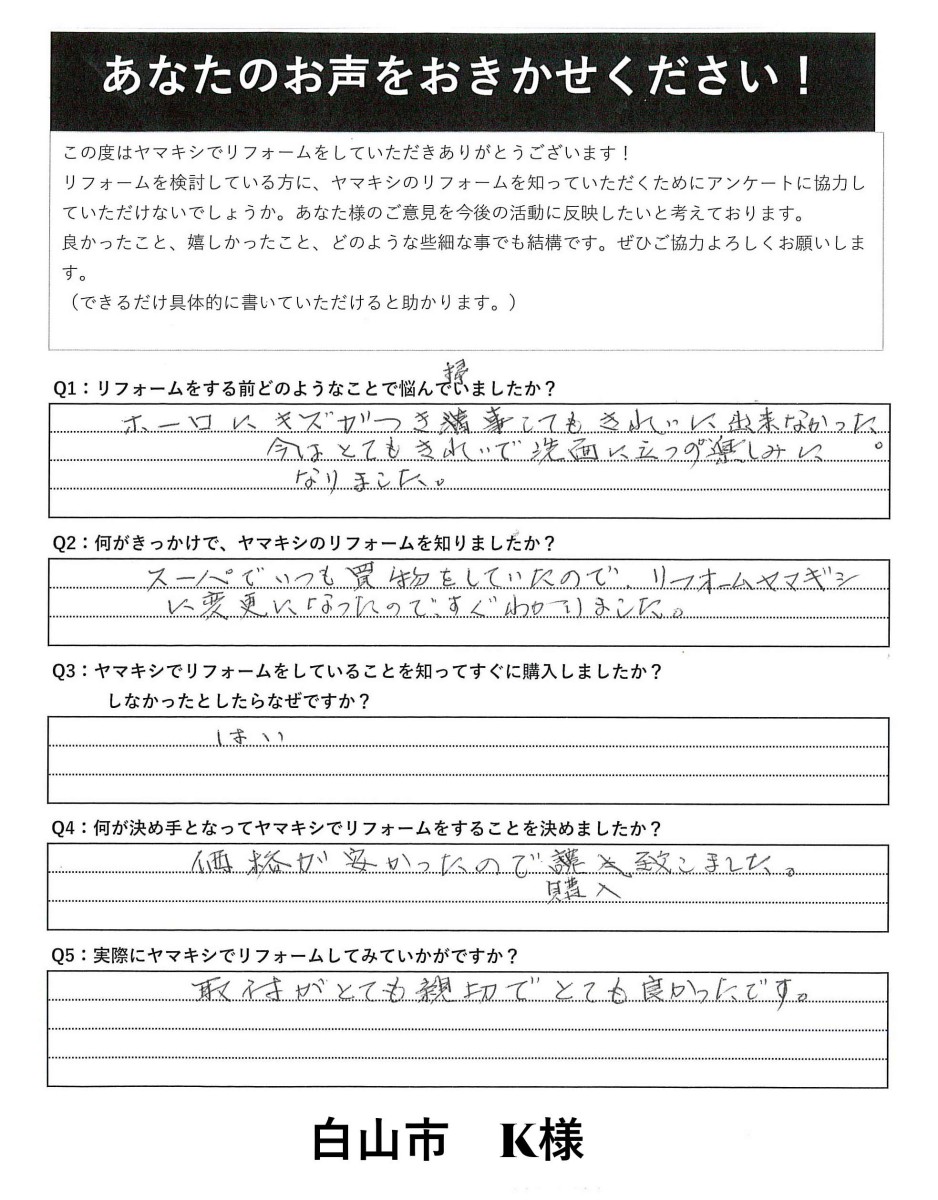 あなたのお声をおきかせください！
この度はヤマキシでリフォームをしていただきありがとうございます！
リフォームを検討している方に、ヤマキシのリフォームを知っていただくためにアンケートに協力し
ていただけないでしょうか。あなた様のご意見を今後の活動に反映したいと考えております。
良かったこと、嬉しかったこと、どのような些細な事でも結構です。ぜひご協力よろしくお願いしま
す。
（できるだけ具体的に書いていただけると助かります。）
Q1：リフォームをする前どのようなことで悩んでいましたか？
掃
ホーロにキズがつき事してもきれいに出来なかった。
今はとてもきれいで洗面に立つのが楽しみに
なりました。
Q2：何がきっかけで、ヤマキシのリフォームを知りましたか？
スーパーでいつも買物をしていたので、リフォームヤマギシ
に変更になったので、すぐわかりました。
Q3：ヤマキシでリフォームをしていることを知ってすぐに購入しましたか？
しなかったとしたらなぜですか？
はい
Q4：何が決め手となってヤマキシでリフォームをすることを決めましたか？
価格が安かったので致しました。
購入
Q5：実際にヤマキシでリフォームしてみていかがですか？
取付がとても親切でとても良かったです。
白山市　K様